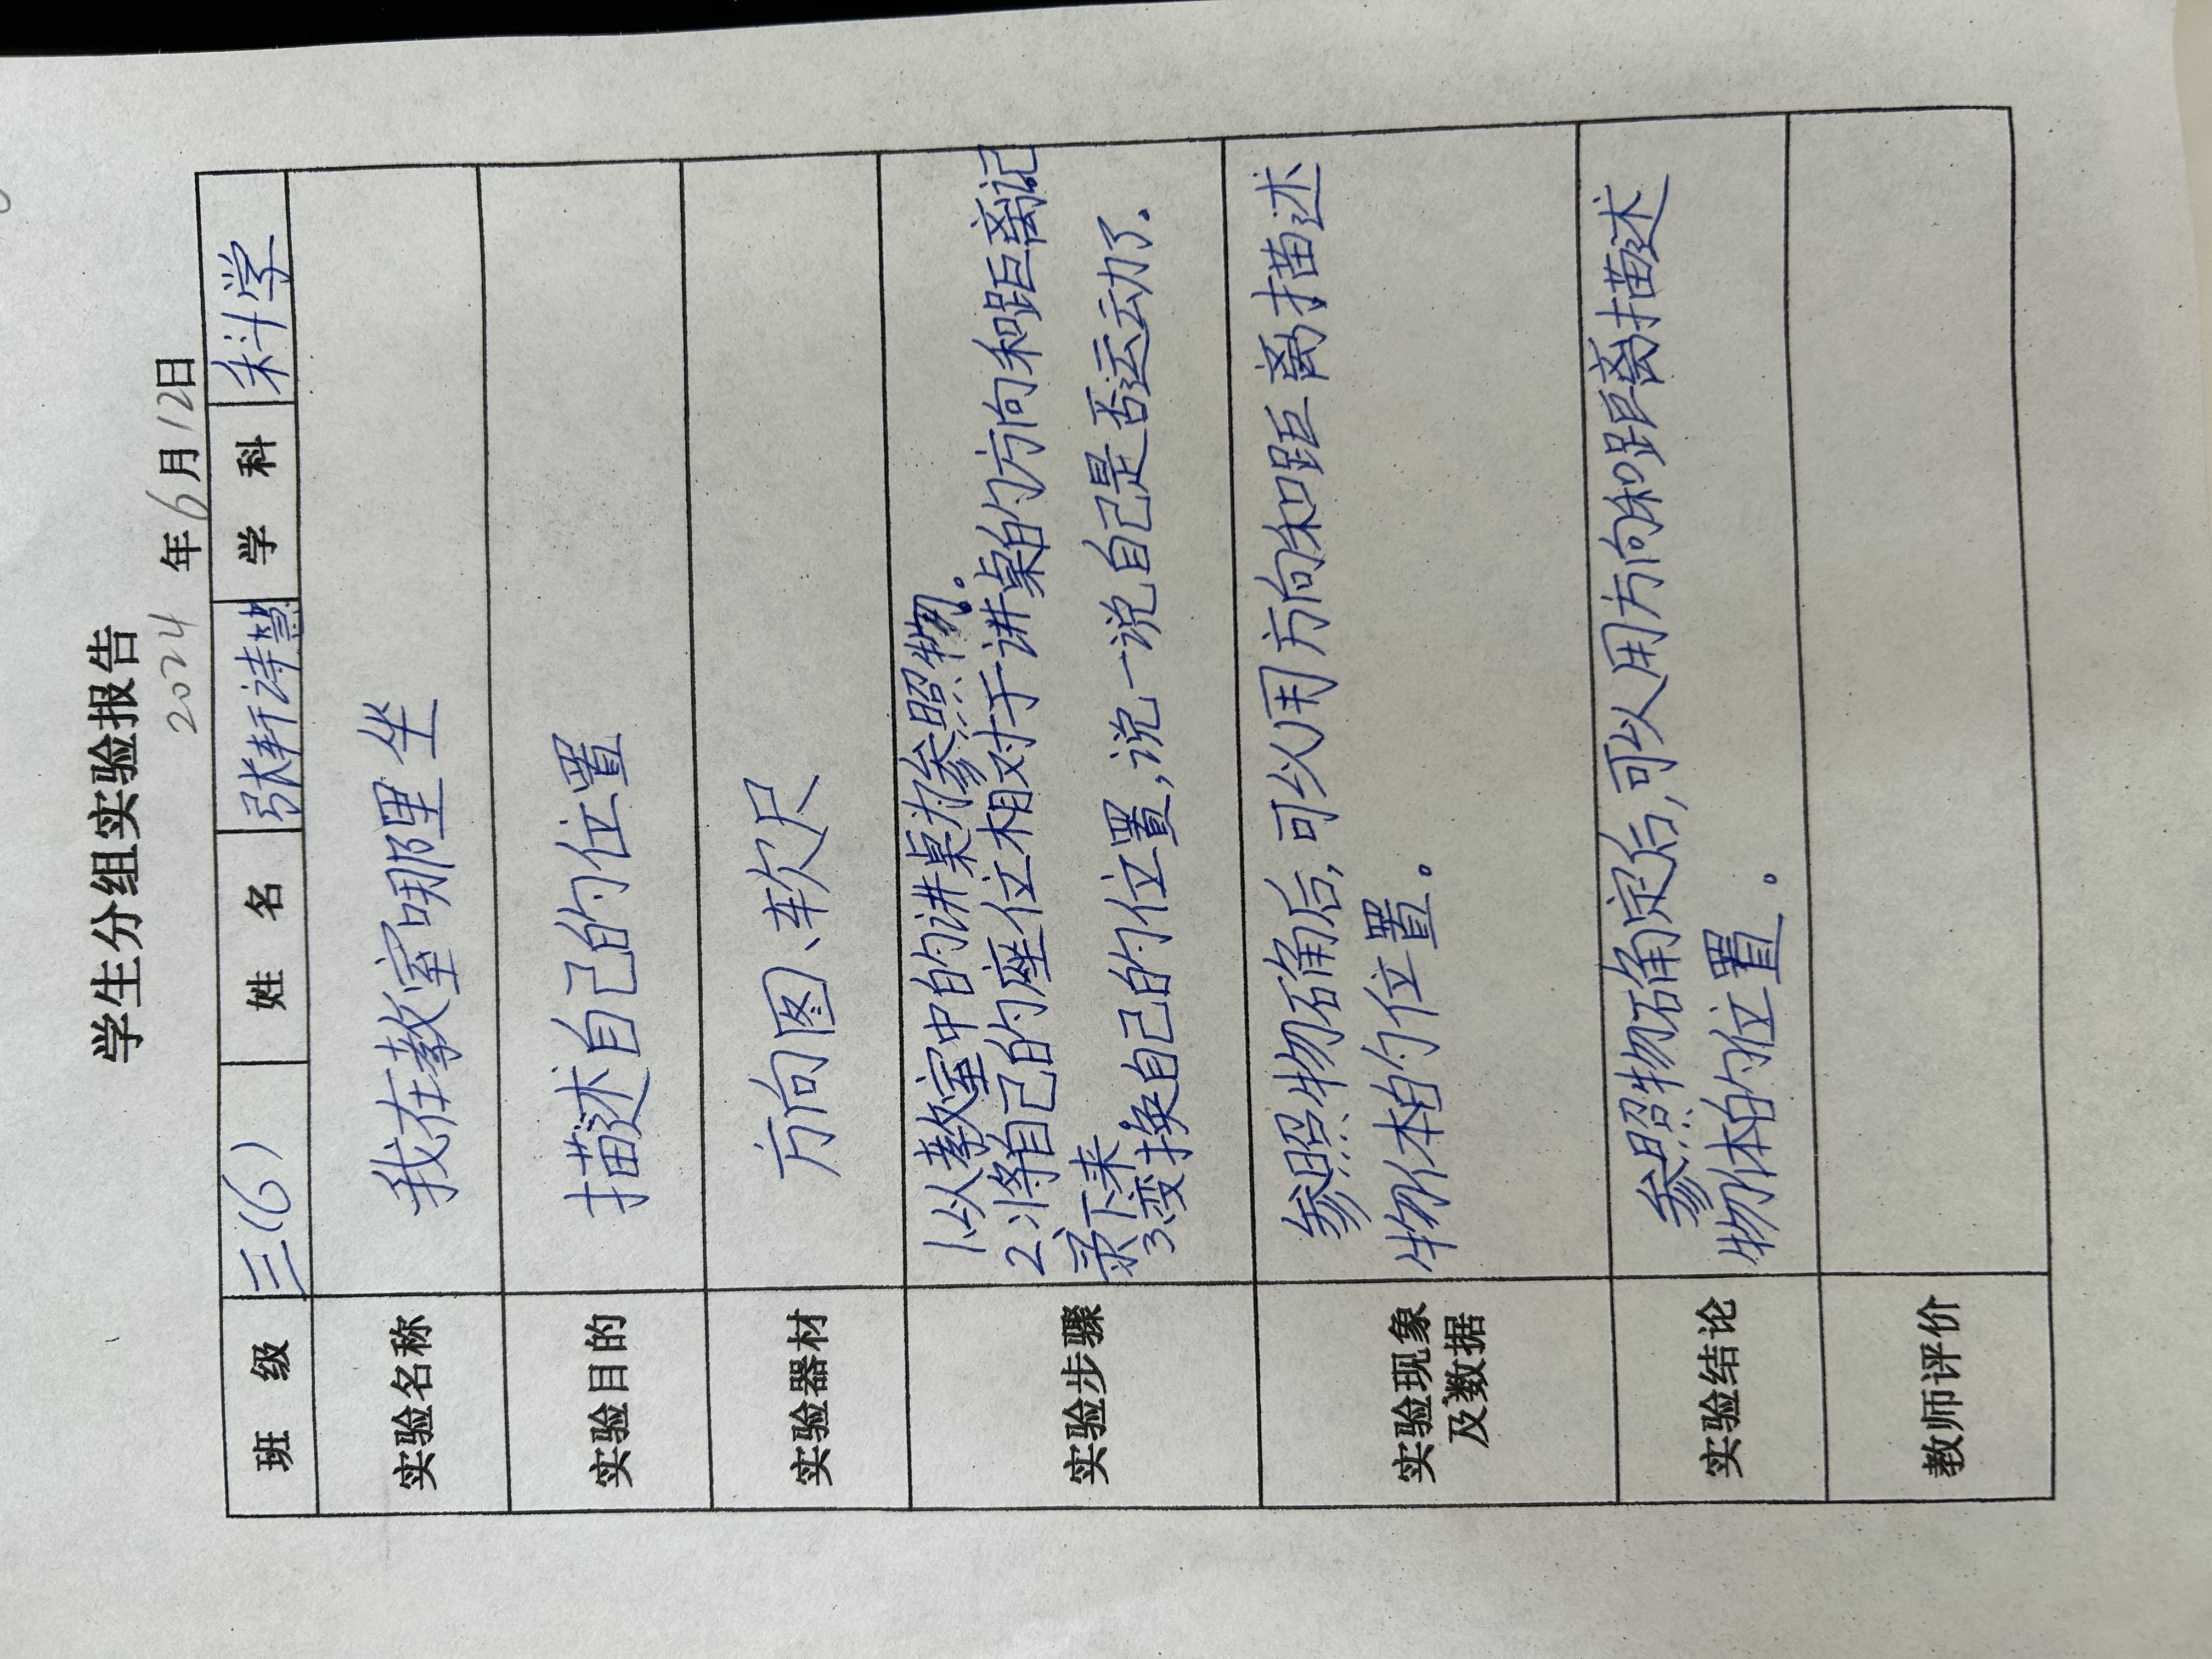 学生分组实验报告
2024年6月12日
班级 三(6) 姓名 张轩诗慧 学科 科学
实验名称 我在教室哪里坐
实验目的 描述自己的位置
实验器材 方向图、软尺
实验步骤
1.以教室中的讲桌为参照物。
2.将自己的座位相对于讲桌的方向和距离记
录下来
3.变换自己的位置,说一说自己是否运动了.
实验现象
及数据
参照物确后,可以用方向和距离描述
物体的位置。
实验结论
参照物确定后,可以用方向和距离描述
物体的位置。
教师评价